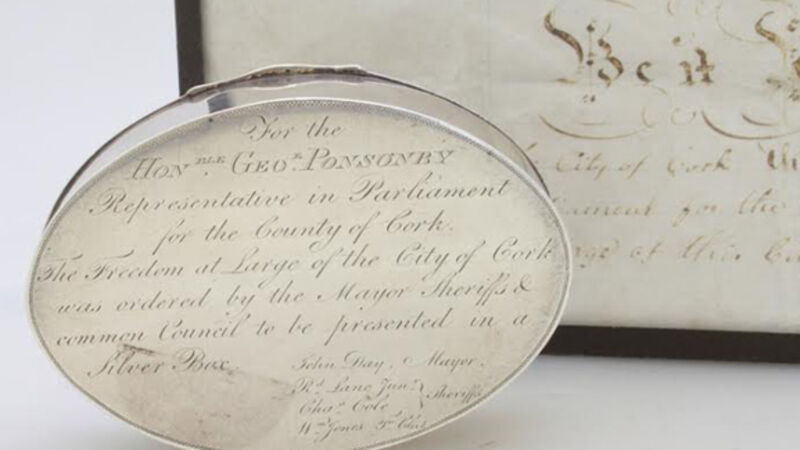 For the
HONble GEOe PONSONBY
Representative in Parliament
for the County of Cork.
The Freedom at Large of the City of Cork
was ordered by the Mayor Sheriffs &
common Council to be presented in a
Silver Box.
John Day, Mayor.
Rd Lane Junr
Chas Cole
Sheriffs
Wm Jones Tn Clk
Be it
City of Cork
for the
of this